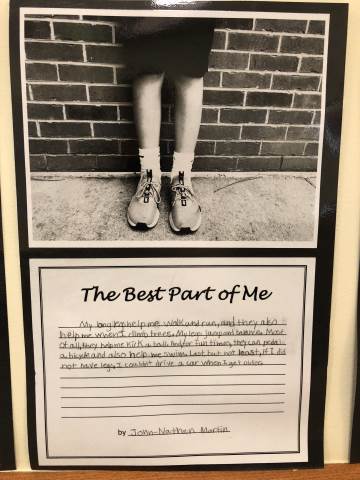 The Best Part of Me
My long legs help me walk and run, and they also
help me when I climb trees. My legs jump and balance. Most
of all, they help me kick a ball. And for fun times, they can pedal
a bicycle and also help me swim. Last but not least, if I did
not have legs, I couldn't drive a car when I get older.
by John-Nathan Martin